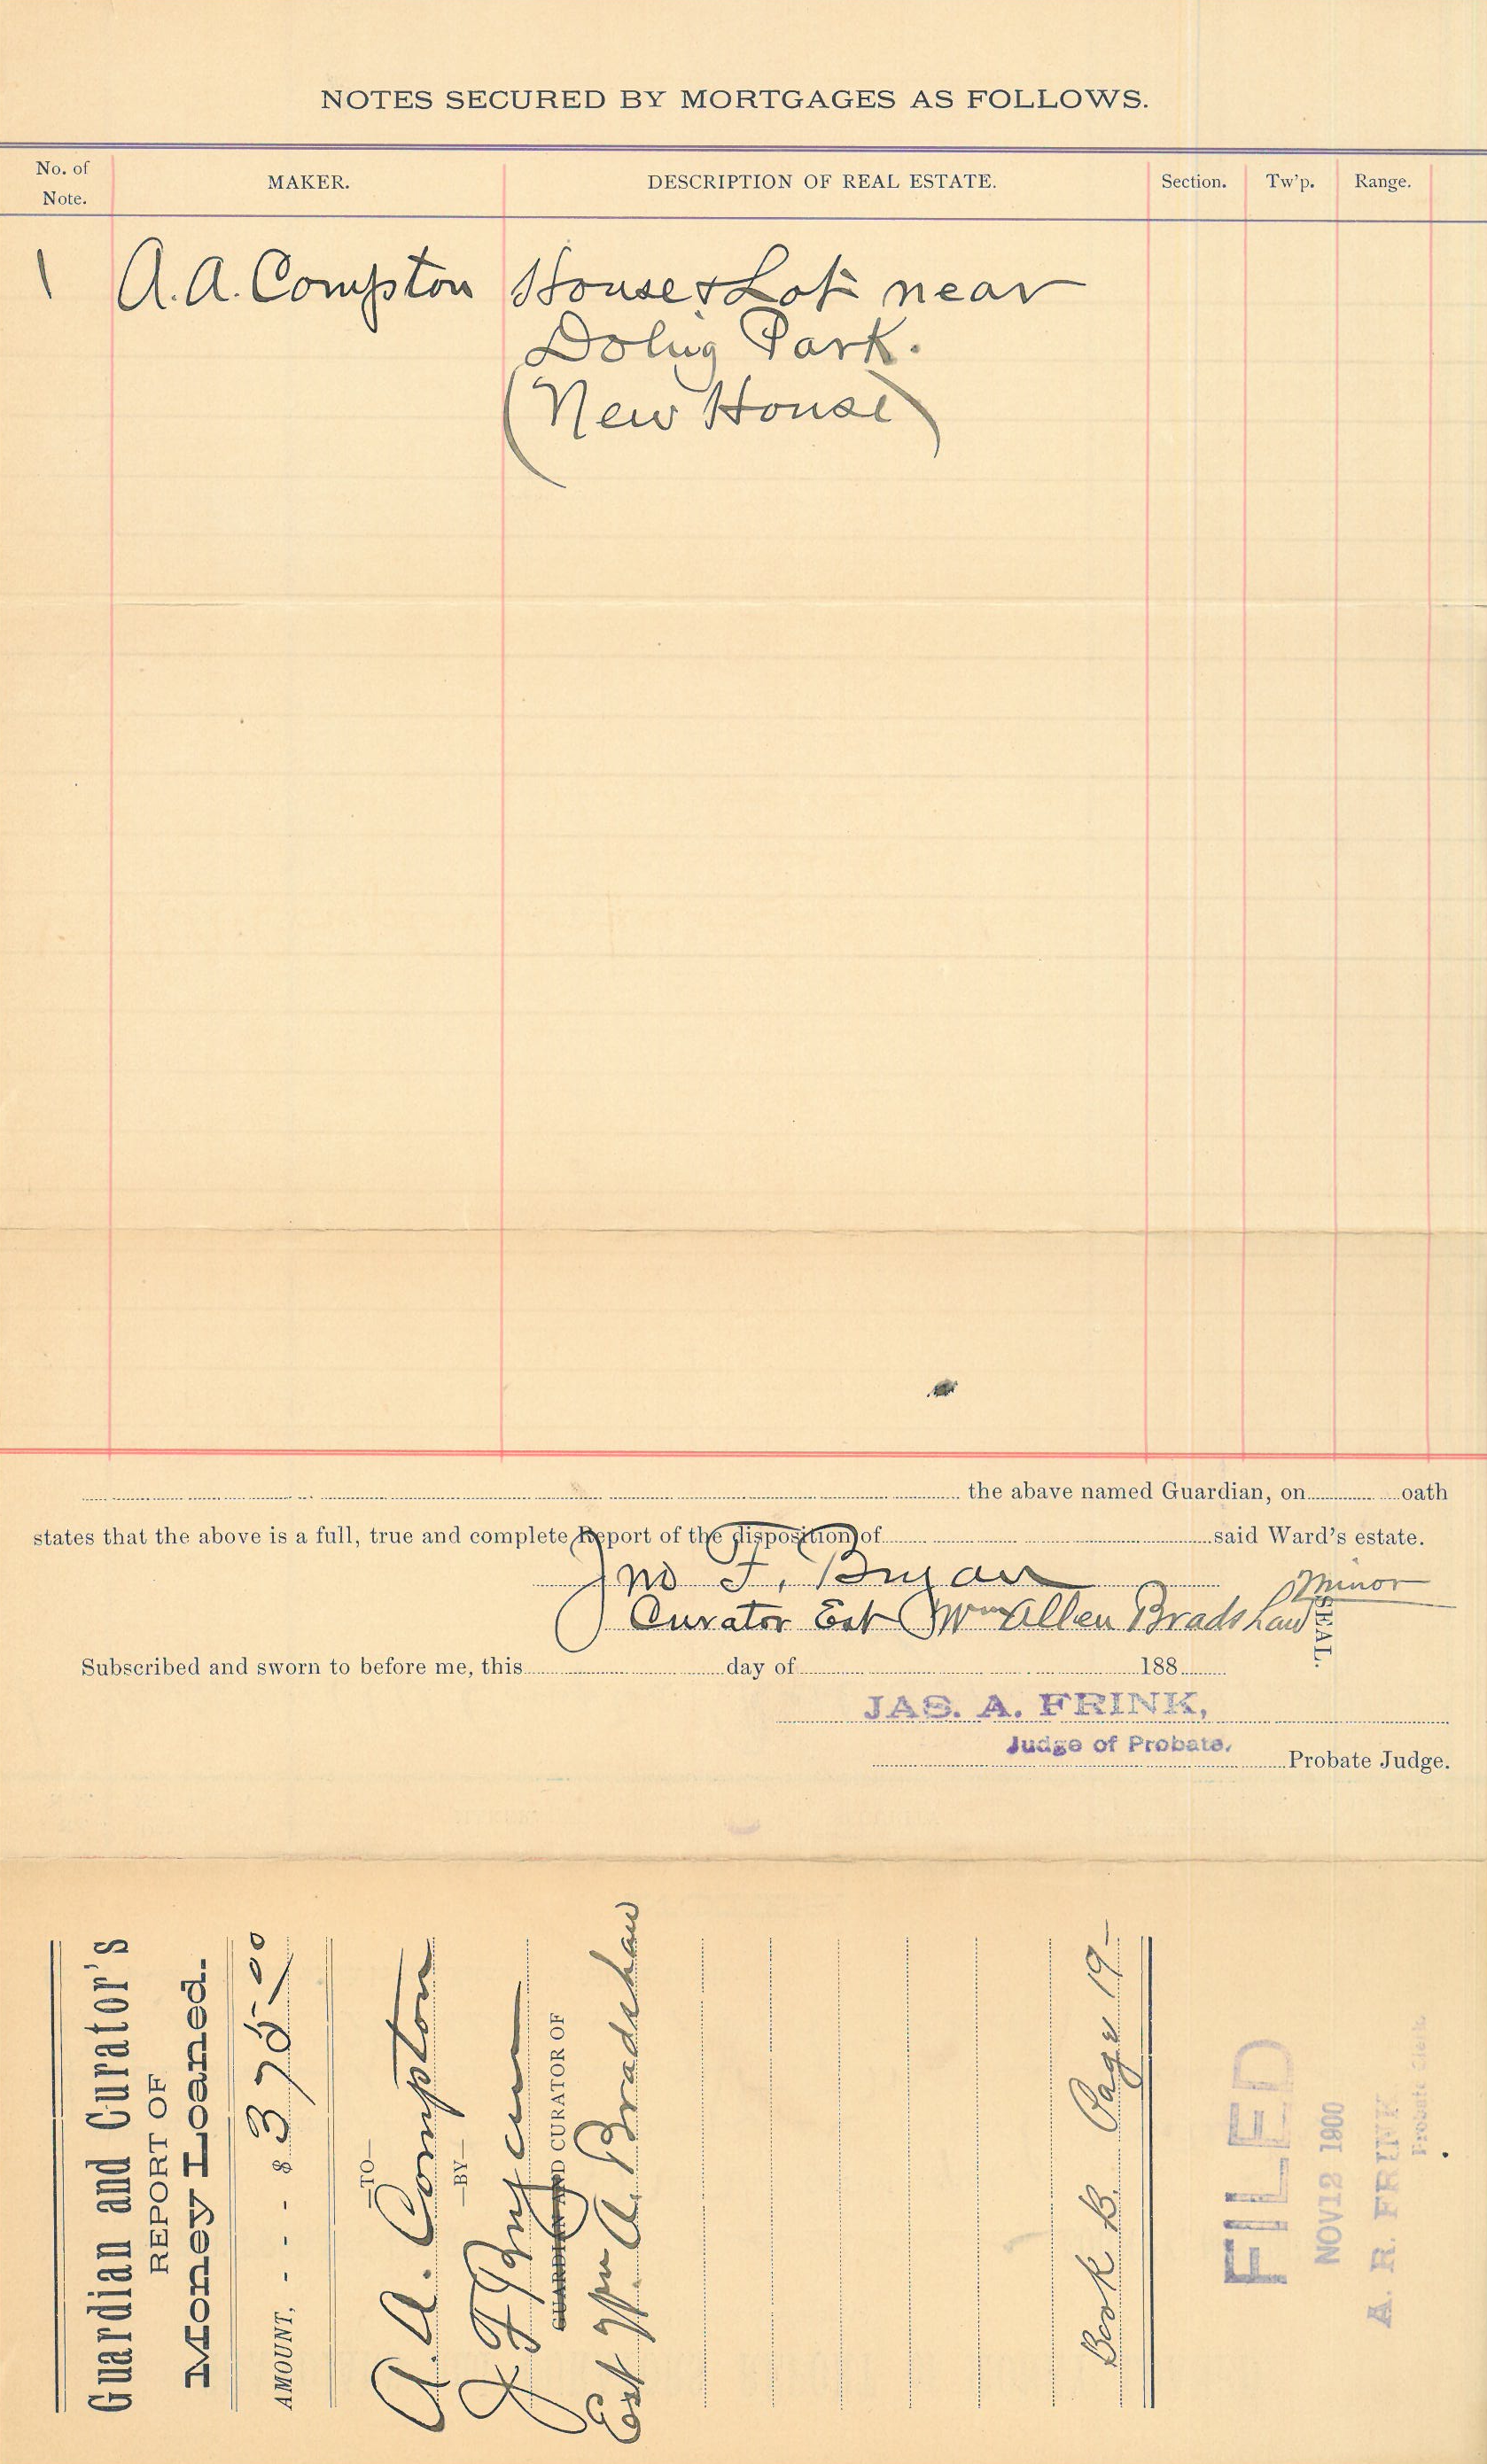 NOTES SECURED BY MORTGAGES AS FOLLOWS.
No. of Note. MAKER. DESCRIPTION OF REAL ESTATE. Section. Tw'p. Range.
1 A.A. Compton House & Lot near
Doling Park.
(New House)
the abave named Guardian, on oath
states that the above is a full, true and complete Report of the disposition of said Ward's estate.
Jno F. Bryan
Curator Est Wm Allen Bradshaw Minor
SEAL.
Subscribed and sworn to before me, this day of 188
JAS. A. FRINK,
Judge of Probate.
Probate Judge.
Guardian and Curator's
REPORT OF
Money Loaned.
AMOUNT, - - - $ 375.00
—TO—
A. A. Compton
—BY—
J F Bryan
GUARDIAN AND CURATOR OF
Est Wm A. Bradshaw
Book B. Page 19-
FILED
NOV 12 1900
A. R. FRINK
Probate Clerk